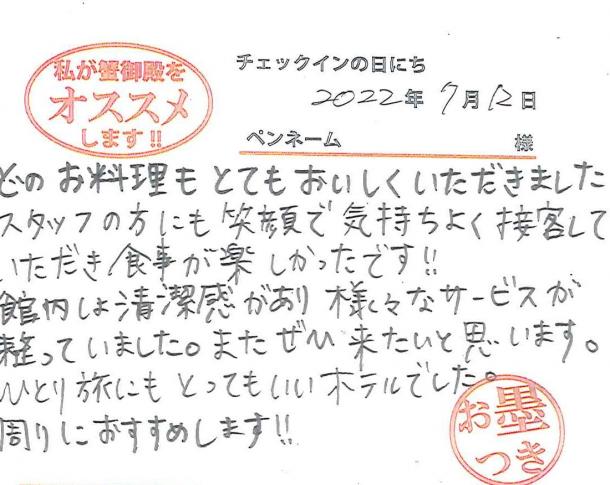 私が蟹御殿を
オススメ
します!!
チェックインの日にち
2022年 7月12日
ペンネーム 様
どのお料理もとてもおいしくいただきました
スタッフの方にも笑顔で気持ちよく接客して
いただき食事が楽しかったです!!
館内も清潔感があり様々なサービスが
整っていました。またぜひ来たいと思います。
ひとり旅にもとってもいいホテルでした。
周りにおすすめします!!
お墨
つき